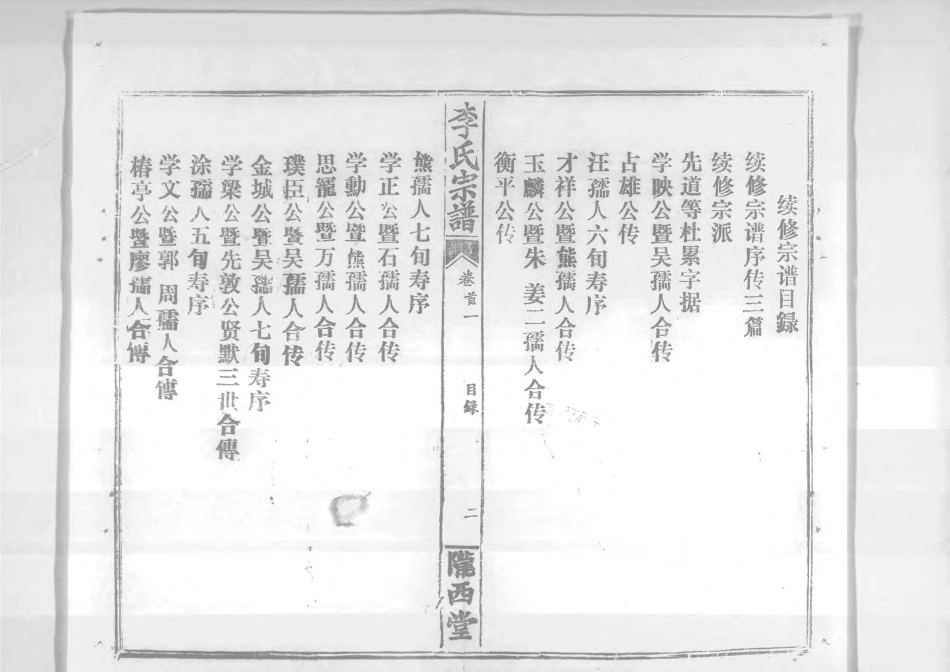 续修宗谱目录
续修宗谱序传三篇
续修宗派
先道等杜累字据
学映公暨吴孺人合传
占雄公传
汪孺人六旬寿序
才祥公暨熊孺人合传
玉麟公暨朱 姜二孺人合传
衡平公传
李氏宗譜
卷首一
目录
二
隴西堂
熊孺人七旬寿序
学正公暨石孺人合传
学勳公暨熊孺人合传
思寵公暨万孺人合传
璞臣公暨吴孺人合传
金城公暨吴孺人七旬寿序
学樑公暨先敦公贤默三世合傳
涂孺人五旬寿序
学文公暨郭 周孺人合傳
椿亭公暨廖孺人合傳